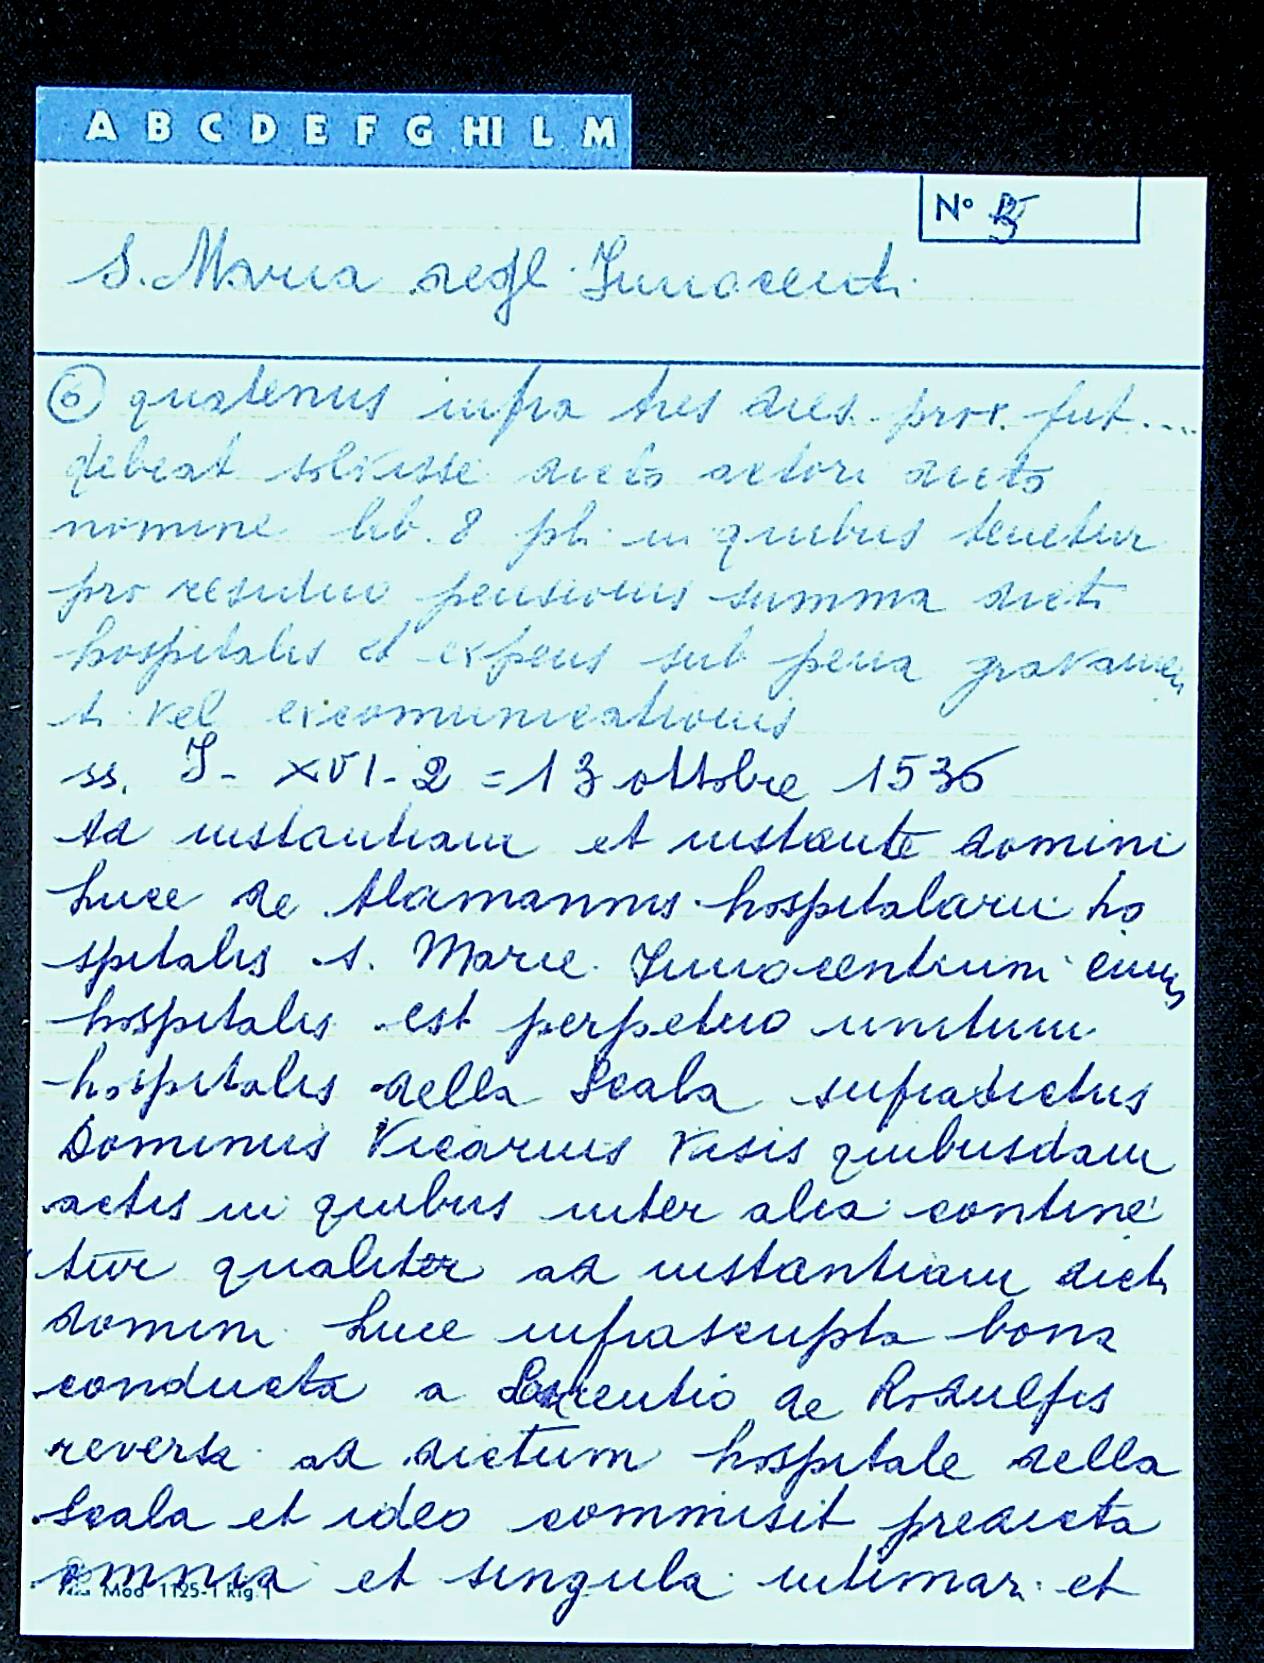 A B C D E F G HI L M
N° 5
S. Maria degl Innocenti
⑥ quatenus infra tres dies prox. fut....
debeat solvisse dicto actori dicto
nomine lib. 8 pli in quibus tenetur
pro residuo pensionis summa dicti
hospitalis et expens sub pena gravamen
ti vel excomunicationis
ss. I - XVI - 2 = 13 ottobre 1536
Ad instantiam et instante domini
Luce de Alamannis hospitalarii ho
spitalis S. Marie Innocentium cuius
hospitalis est perpetuo unitum
hospitalis della Scala supradictus
Dominus Vicarius visis quibusdam
actis in quibus inter alia contine
tur qualiter ad instantiam dicti
domini Luce infrascripta bona
conducta a Laurentio de Rodulfis
reversa ad dictum hospitale della
Scala et ideo commisit predicta
omnia et singula intimari et
Mod 1125-1 Rig. 1